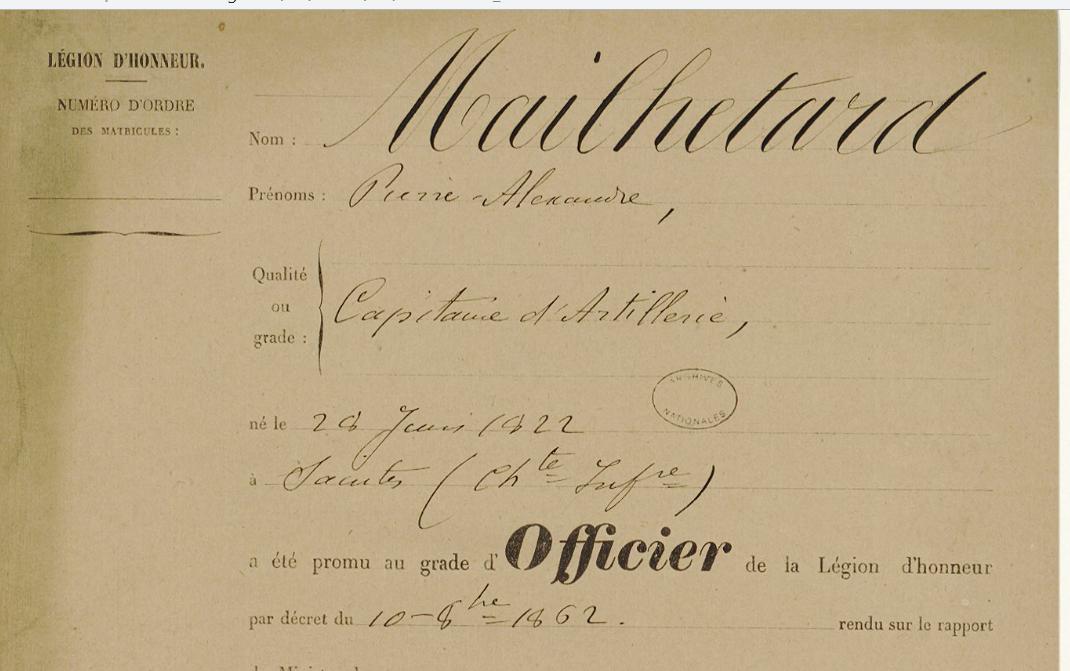 LÉGION D'HONNEUR.
NUMÉRO D'ORDRE
DES MATRICULES :
Nom : Mailhetard
Prénoms : Pierre-Alexandre,
Qualité
ou
grade :
Capitaine d'Artillerie,
ARCHIVES
NATIONALES
né le 28 Juin 1822
à Saintes (Chte Infre)
a été promu au grade d'Officier de la Légion d'honneur
par décret du 10-8bre 1862. rendu sur le rapport